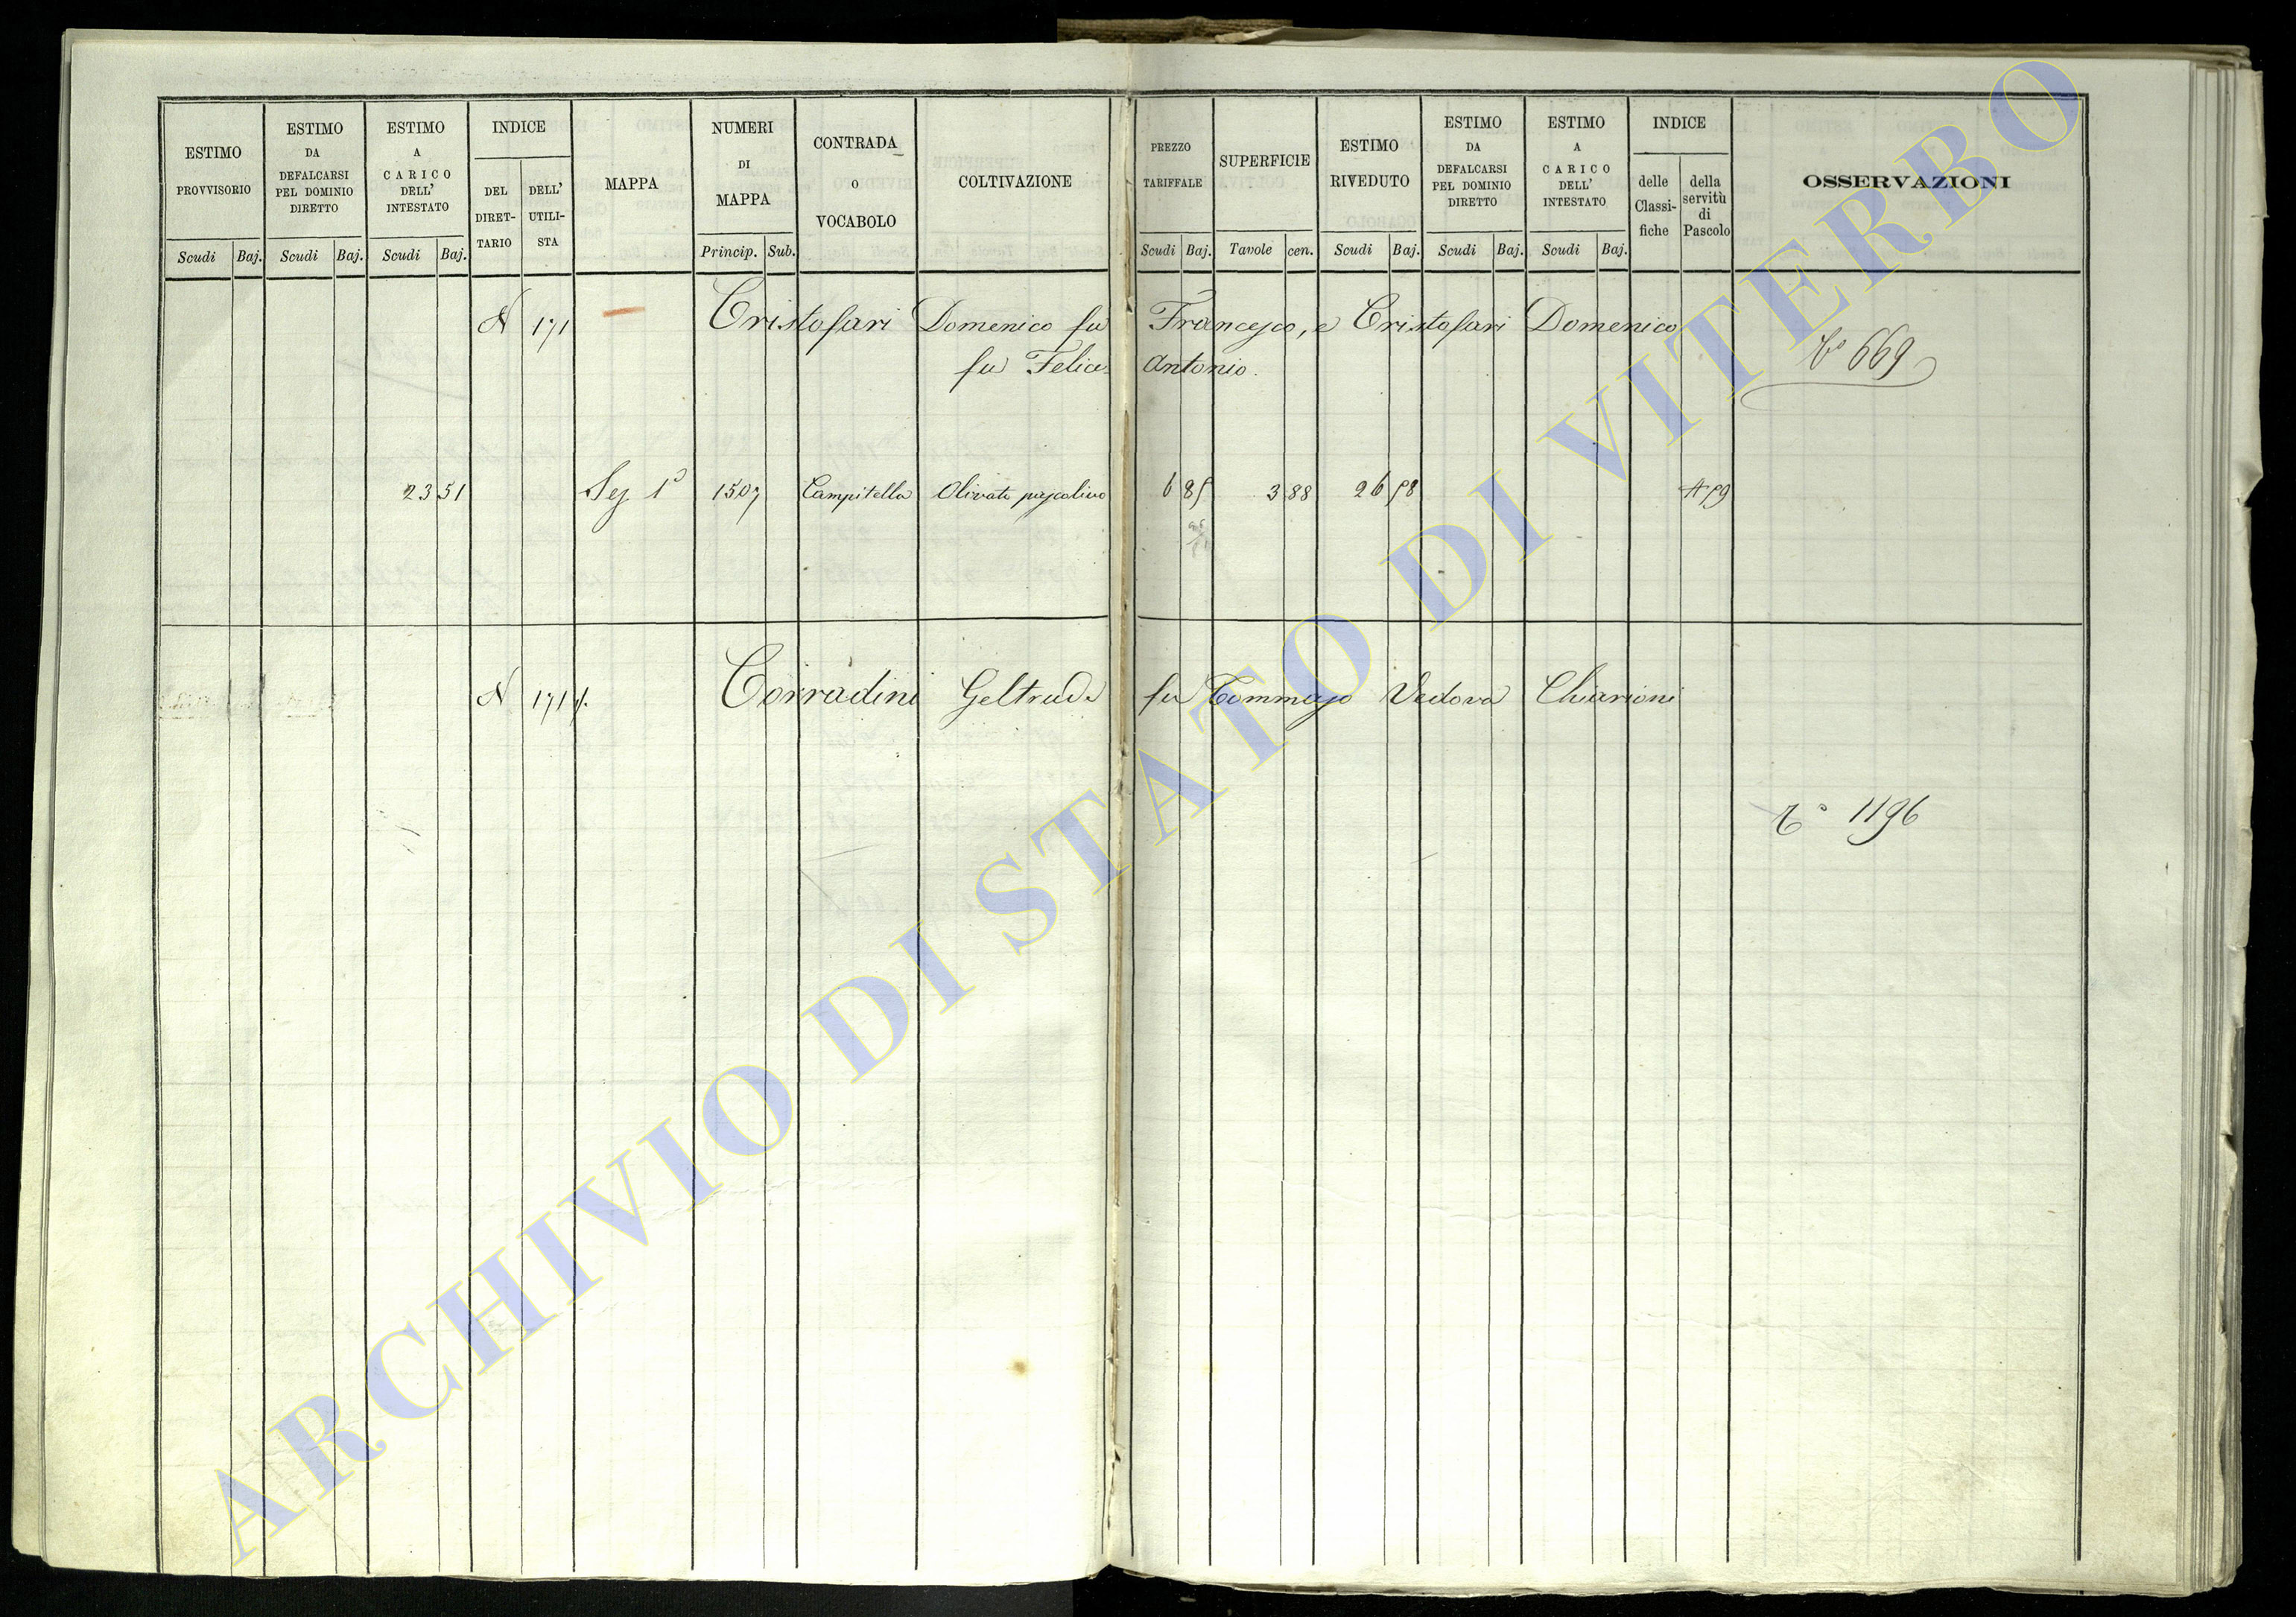 ESTIMO PROVVISORIO Scudi Baj.
ESTIMO DA DEFALCARSI PEL DOMINIO DIRETTO Scudi Baj.
ESTIMO A CARICO DELL' INTESTATO Scudi Baj.
INDICE DEL DIRET-TARIO DELL' UTILI-STA
MAPPA
NUMERI DI MAPPA Princip. Sub.
CONTRADA o VOCABOLO
COLTIVAZIONE
PREZZO TARIFFALE Scudi Baj.
SUPERFICIE Tavole cen.
ESTIMO RIVEDUTO Scudi Baj.
ESTIMO DA DEFALCARSI PEL DOMINIO DIRETTO Scudi Baj.
ESTIMO A CARICO DELL' INTESTATO Scudi Baj.
INDICE delle Classi-fiche della servitù di Pascolo
OSSERVAZIONI
N 171 Cristofari Domenico fu Francesco, e Cristofari Domenico
fu Felice Antonio.
669
23 51 Sez 1ª 1507 Campitella Olivato pascolivo 6 85 3 88 26 58
N 171 Corradini Geltrude fu Tommaso Vedova Chiarioni
1196
ARCHIVIO DI STATO DI VITERBO